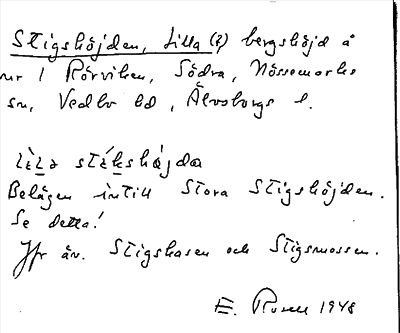 Stigshöjden, Lilla (?) bergshöjd å
nr 1 Rörviken, Södra, Nössemarks
sn, Vedbo hd, Älvsborgs l.
lìla stékshǿjda
Belägen intill Stora Stigshöjden.
Se detta!
Jfr äv. Stigshasen och Stigsmossen.
E. Rosen 1948